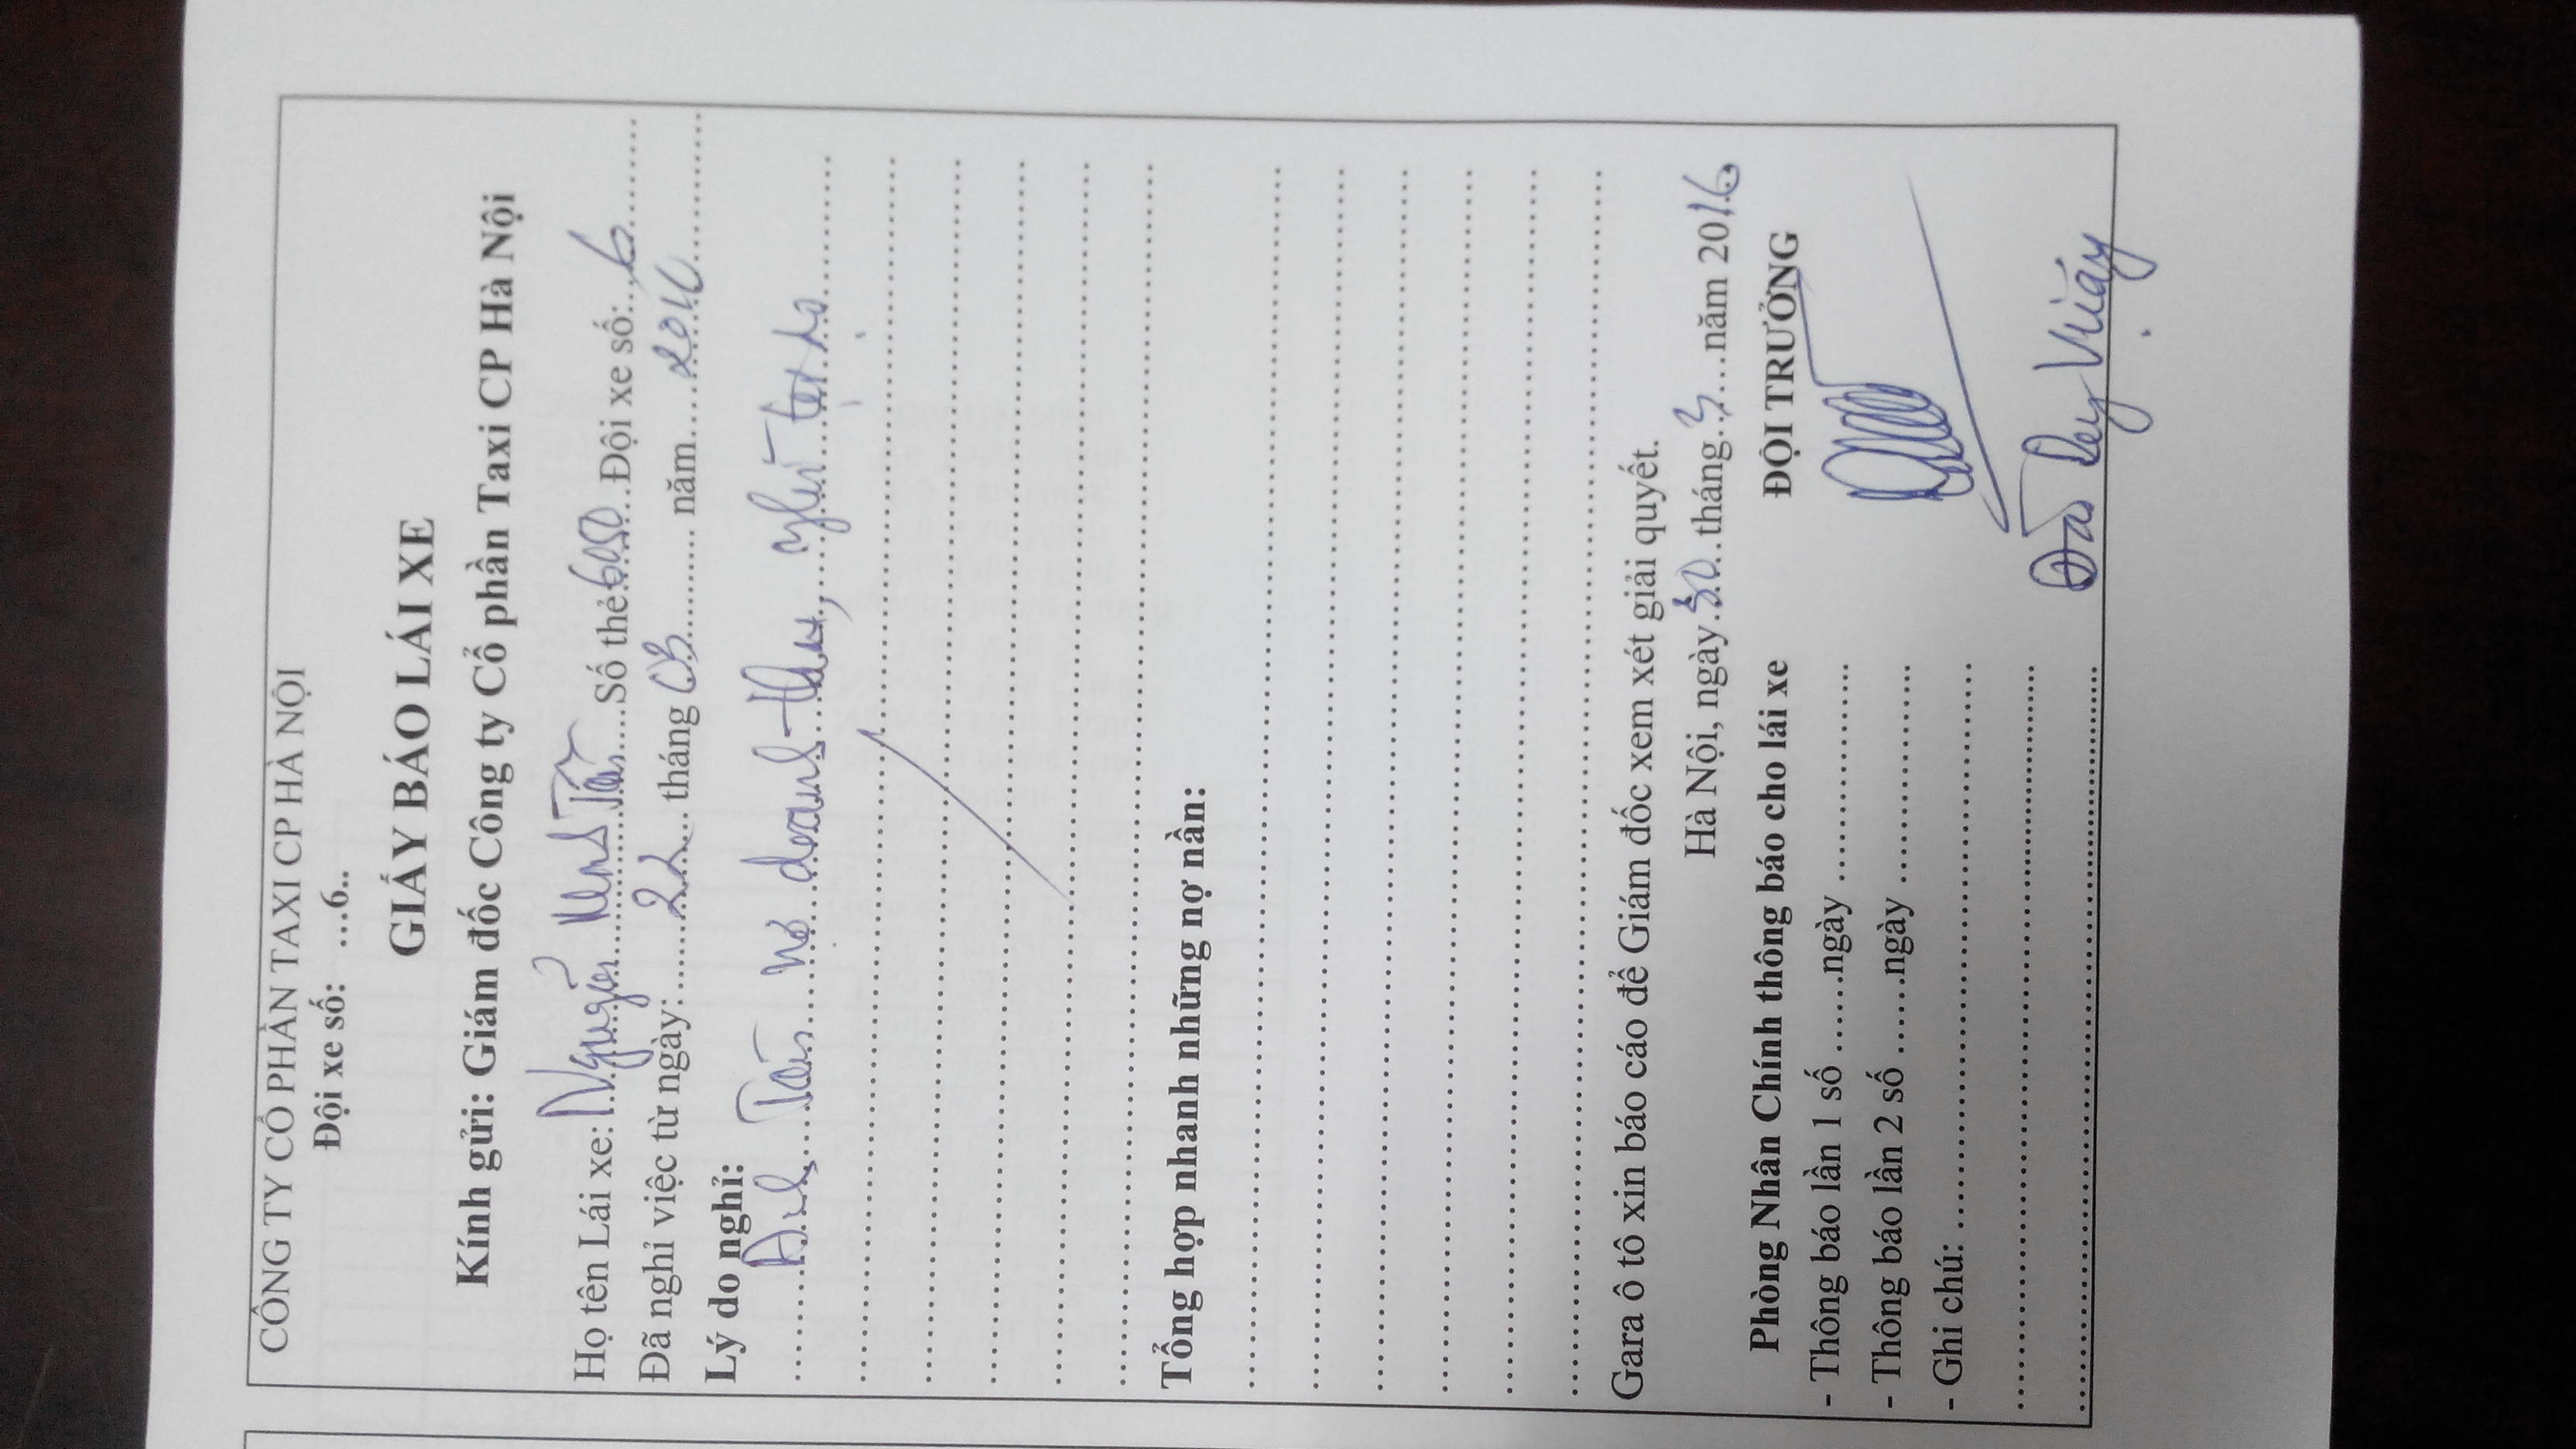 CÔNG TY CỔ PHẦN TAXI CP HÀ NỘI
Đội xe số: ...6..
GIẤY BÁO LÁI XE
Kính gửi: Giám đốc Công ty Cổ phần Taxi CP Hà Nội
Họ tên Lái xe: Nguyễn Tấn Số thẻ: 6050 Đội xe số: 6
Đã nghỉ việc từ ngày: 22 tháng 03 năm 2016
Lý do nghỉ:
Anh Tấn nợ doanh thu,
Tổng hợp nhanh những nợ nần:
Gara ô tô xin báo cáo để Giám đốc xem xét giải quyết.
Hà Nội, ngày 30 tháng 3 năm 2016
Phòng Nhân Chính thông báo cho lái xe ĐỘI TRƯỞNG
- Thông báo lần 1 số ......ngày
- Thông báo lần 2 số ......ngày
- Ghi chú:
Đào Duy